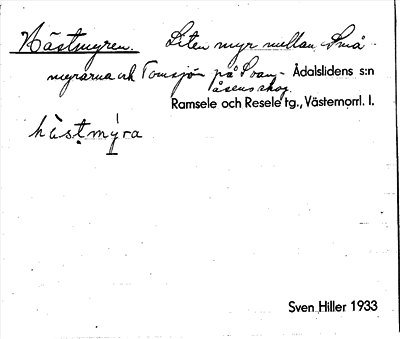 Hästmyren. Liten myr mellan Små-
myrarna och Tomsjön på Svan- Ådalslidens s:n
åsens skog.
Ramsele och Resele tg., Västernorrl. l.
hästmýra
Sven Hiller 1933